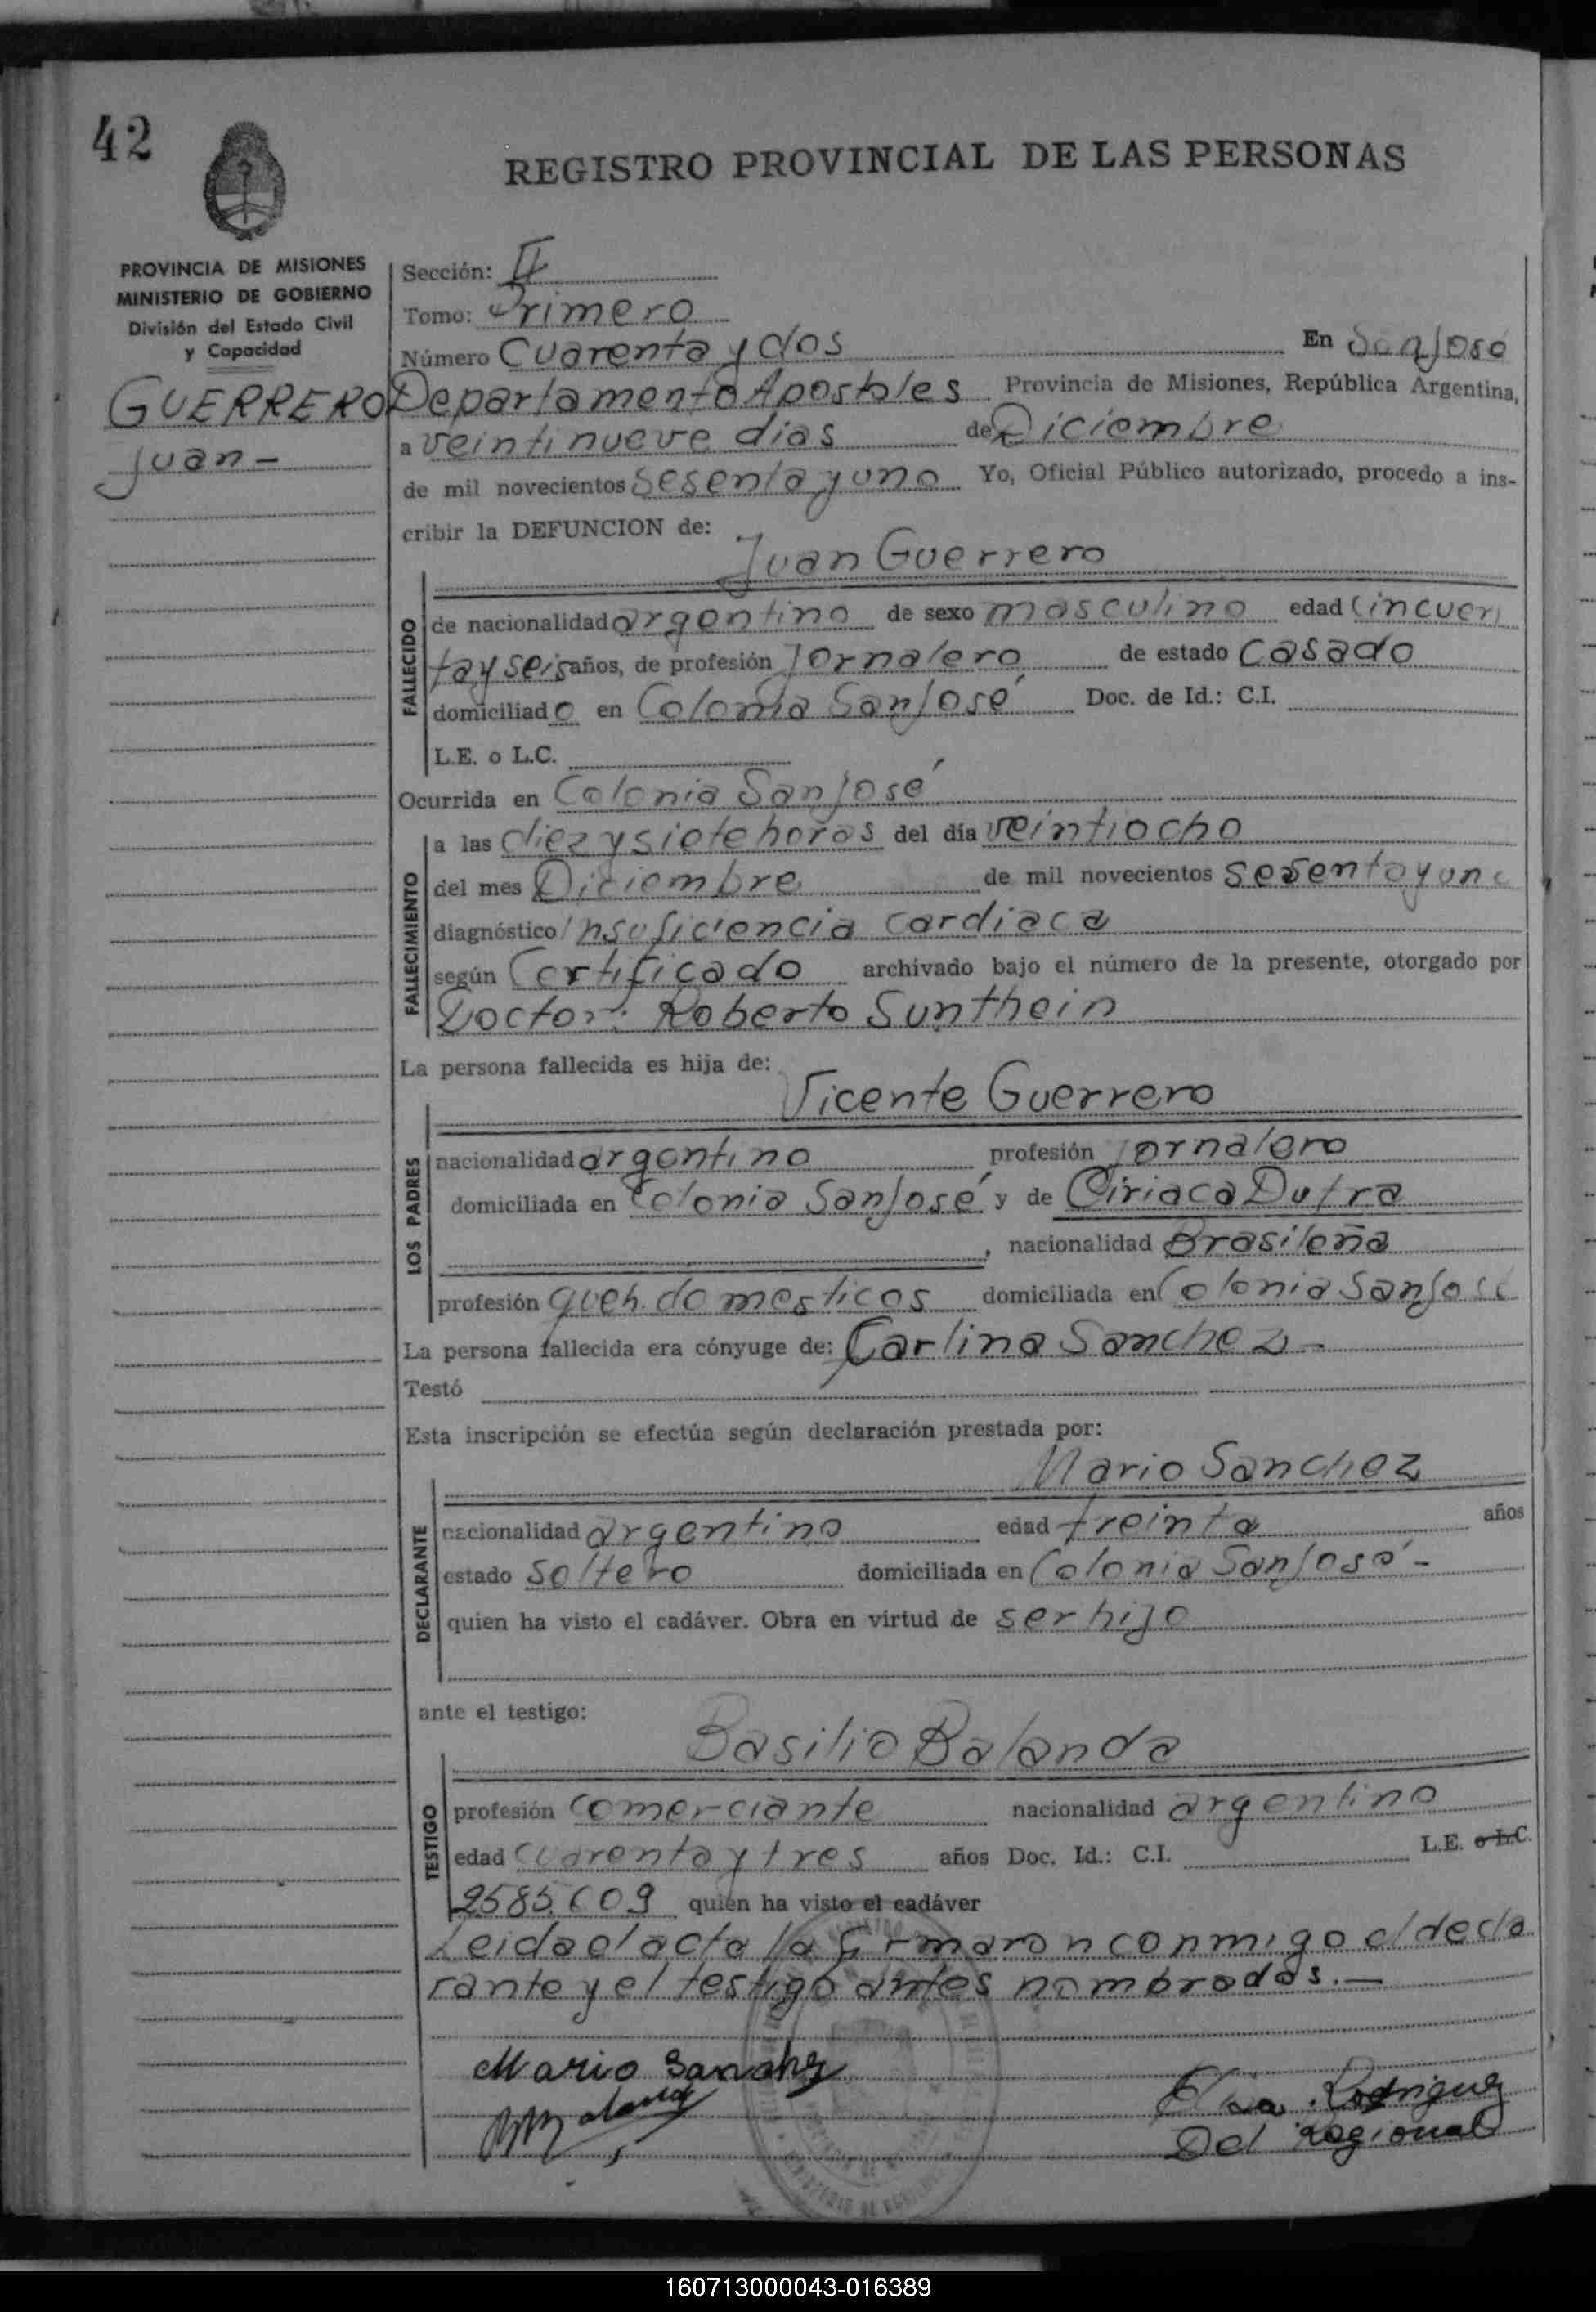 42
REGISTRO PROVINCIAL DE LAS PERSONAS
PROVINCIA DE MISIONES
MINISTERIO DE GOBIERNO
División del Estado Civil
y Capacidad
GUERRERO
Juan -
Sección: II
Tomo: Primero
Número Cuarenta y dos En San José
Departamento Apostoles Provincia de Misiones, República Argentina,
a veintinueve dias de Diciembre
de mil novecientos sesenta y uno Yo, Oficial Público autorizado, procedo a ins-
cribir la DEFUNCION de:
Juan Guerrero
FALLECIDO
de nacionalidad argentino de sexo masculino edad cincuen
ta y seis años, de profesión Jornalero de estado Casado
domiciliado en Colonia San José Doc. de Id.: C.I.
L.E. o L.C.
Ocurrida en Colonia San José
FALLECIMIENTO
a las diez y siete horas del día veintiocho
del mes Diciembre de mil novecientos sesenta y uno
diagnóstico Insuficiencia cardiaca
según Certificado archivado bajo el número de la presente, otorgado por
Doctor: Roberto Sunthein
La persona fallecida es hija de:
Vicente Guerrero
LOS PADRES
nacionalidad argentino profesión jornalero
domiciliada en Colonia San José y de Ciriaca Dutra
, nacionalidad Brasileña
profesión queh. domesticos domiciliada en Colonia San José
La persona fallecida era cónyuge de: Carlina Sanchez -
Testó
Esta inscripción se efectúa según declaración prestada por:
Mario Sanchez
DECLARANTE
nacionalidad argentino edad treinta años
estado soltero domiciliada en Colonia San José -
quien ha visto el cadáver. Obra en virtud de ser hijo
ante el testigo:
Basilio Balanda
TESTIGO
profesión comerciante nacionalidad argentino
edad cuarenta y tres años Doc. Id.: C.I. L.E. o L.C.
2585.609 quien ha visto el cadáver
Leida el acta la firmaron conmigo el decla
rante y el testigo antes nombrados. —
Mario Sanchez
Rodriguez
Del Regional
160713000043-016389